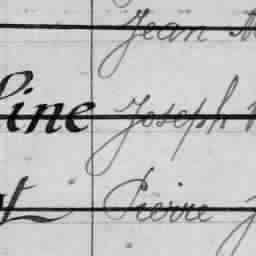 Jean
ine Joseph
Pierre